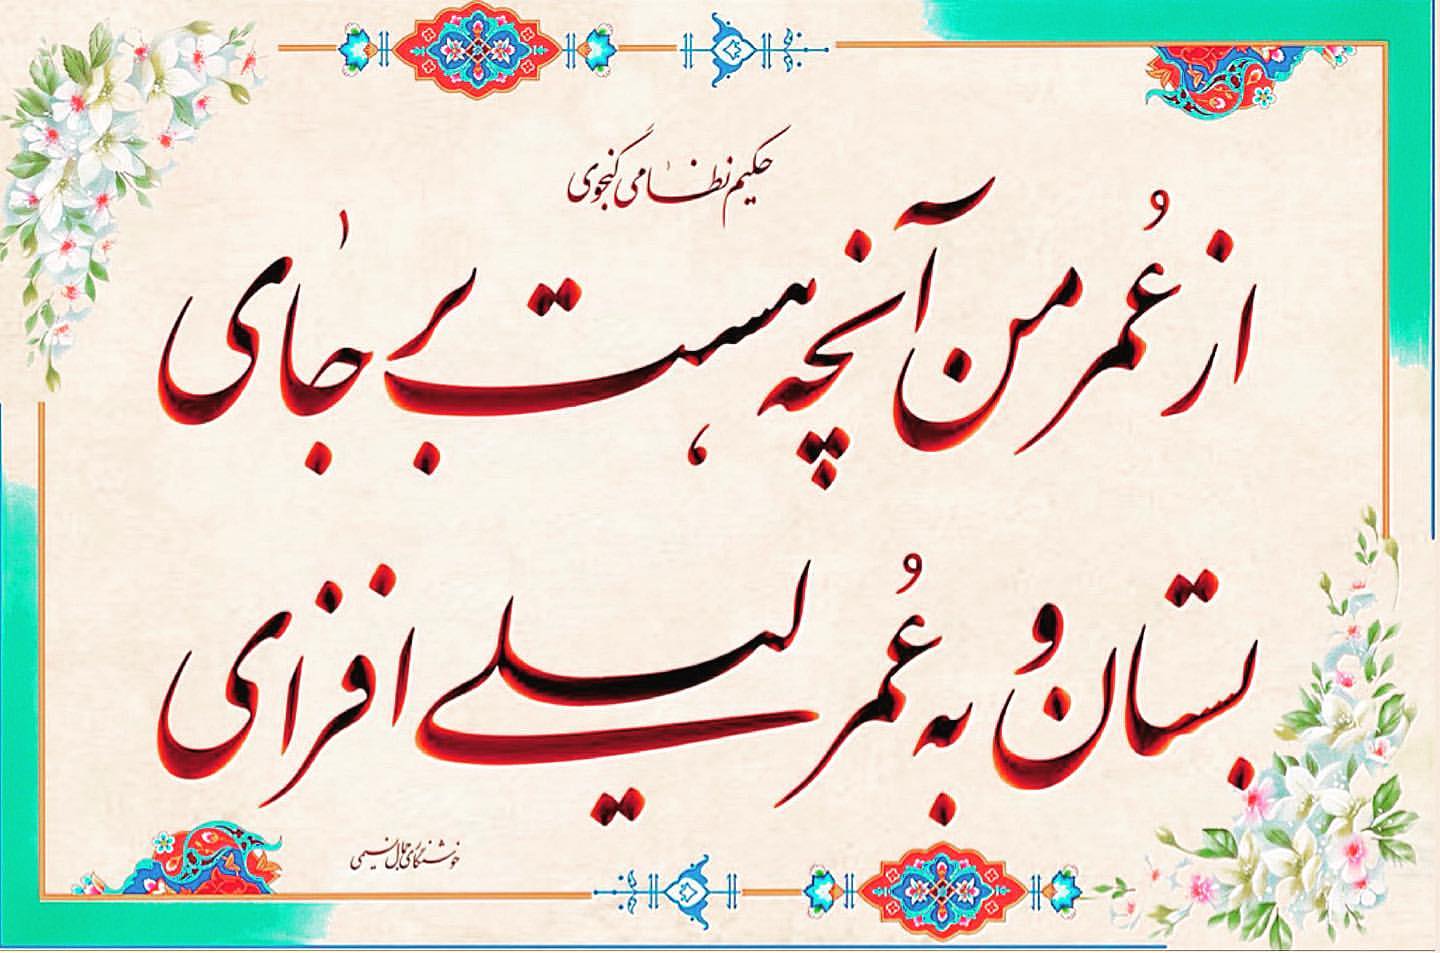 حکیم نظامی گنجوی
از عُمر من آنچه هست بر جای
بستان و به عُمر لیلی افزای
خوشنگاری جمال نسیمی